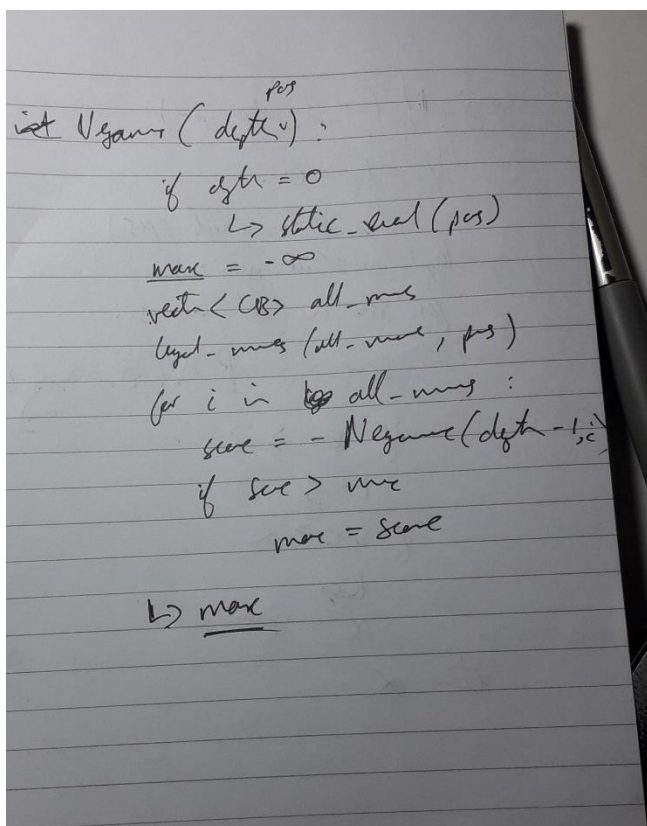 int Negamax (depth, pos) :
if depth = 0
↳ static_eval (pos)
max = -∞
vector <CB> all_moves
legal_moves (all_moves, pos)
for i in all_moves :
score = - Negamax (depth - 1, i)
if score > max
max = score
↳ max